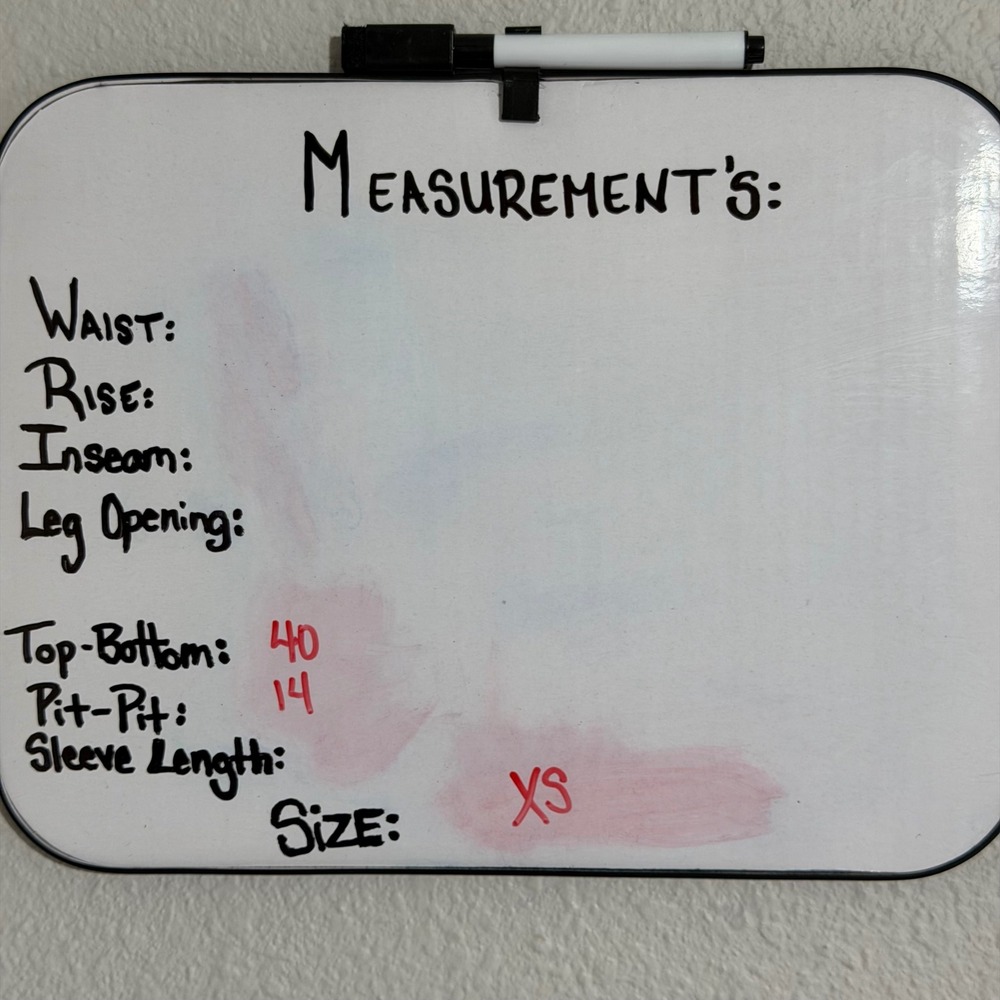 MEASUREMENT'S:
WAIST:
RISE:
Inseam:
Leg Opening:
Top-Bottom: 40
Pit-Pit: 14
Sleeve Length:
SiZE: XS